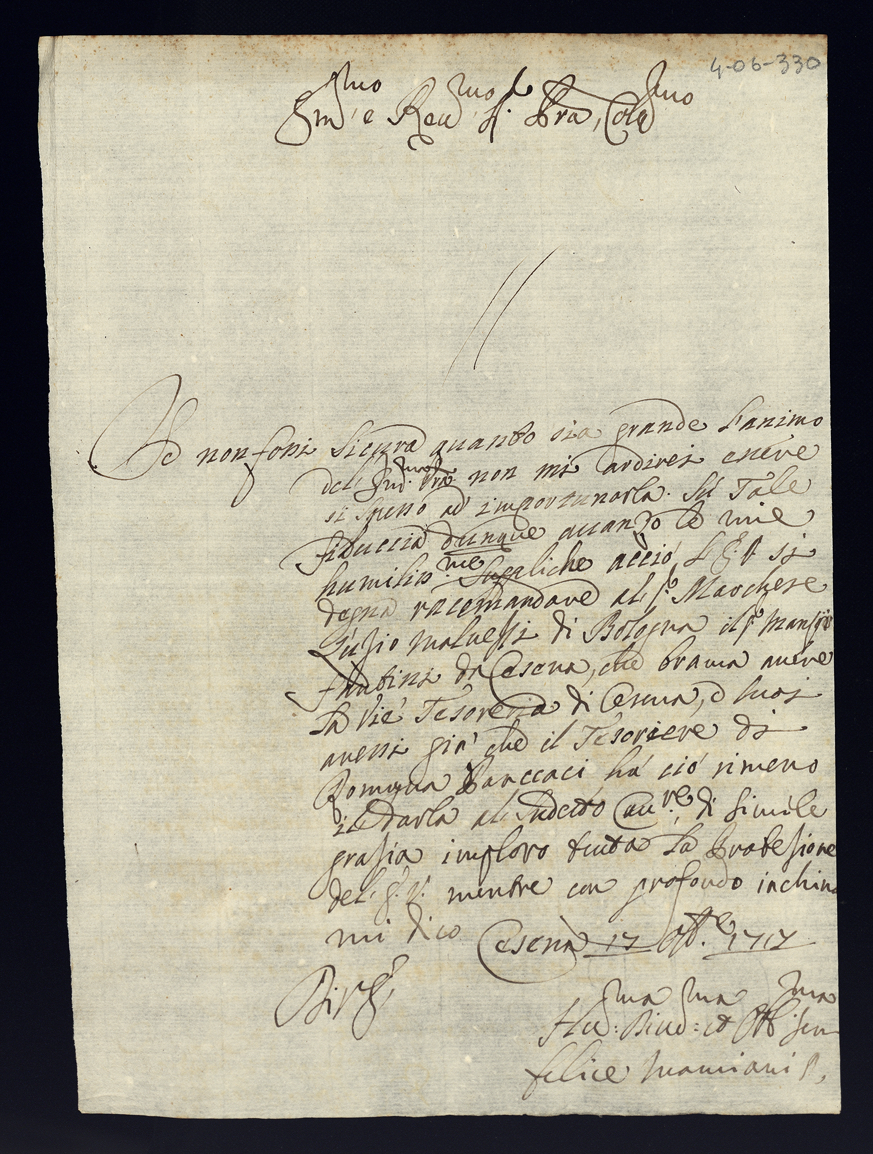 4-06-330
Em.mo e Reu.mo S.r Pra, Col.mo
Se non fossi sicura quanto sia grande l'animo
dell' Em. Vra non mi ardirei essere
si spesso ad' importunarla. Su Tale
fiduccia dunque auanzo le mie
humiliss.me Supliche acciò L'E.V. si
degna racomandare al S.r Marchese
Lusio Maluessi di Bologna il S.r
Fantini da Cesena, che brama auere
la Tesoreria di Cesena, e
auessi già che il Tesoriere di
Romagna hà ciò rimeso
il darla al sudetto Cau.re, di simile
grasia imploro tutta la Protesione
del' E. V. mentre con profondo inchino
mi dico Cesena 17 Ott.e 1717
D: V: E:
Hu:ma Diuo:ma et Obb.ma Ser
Felice Mamiani